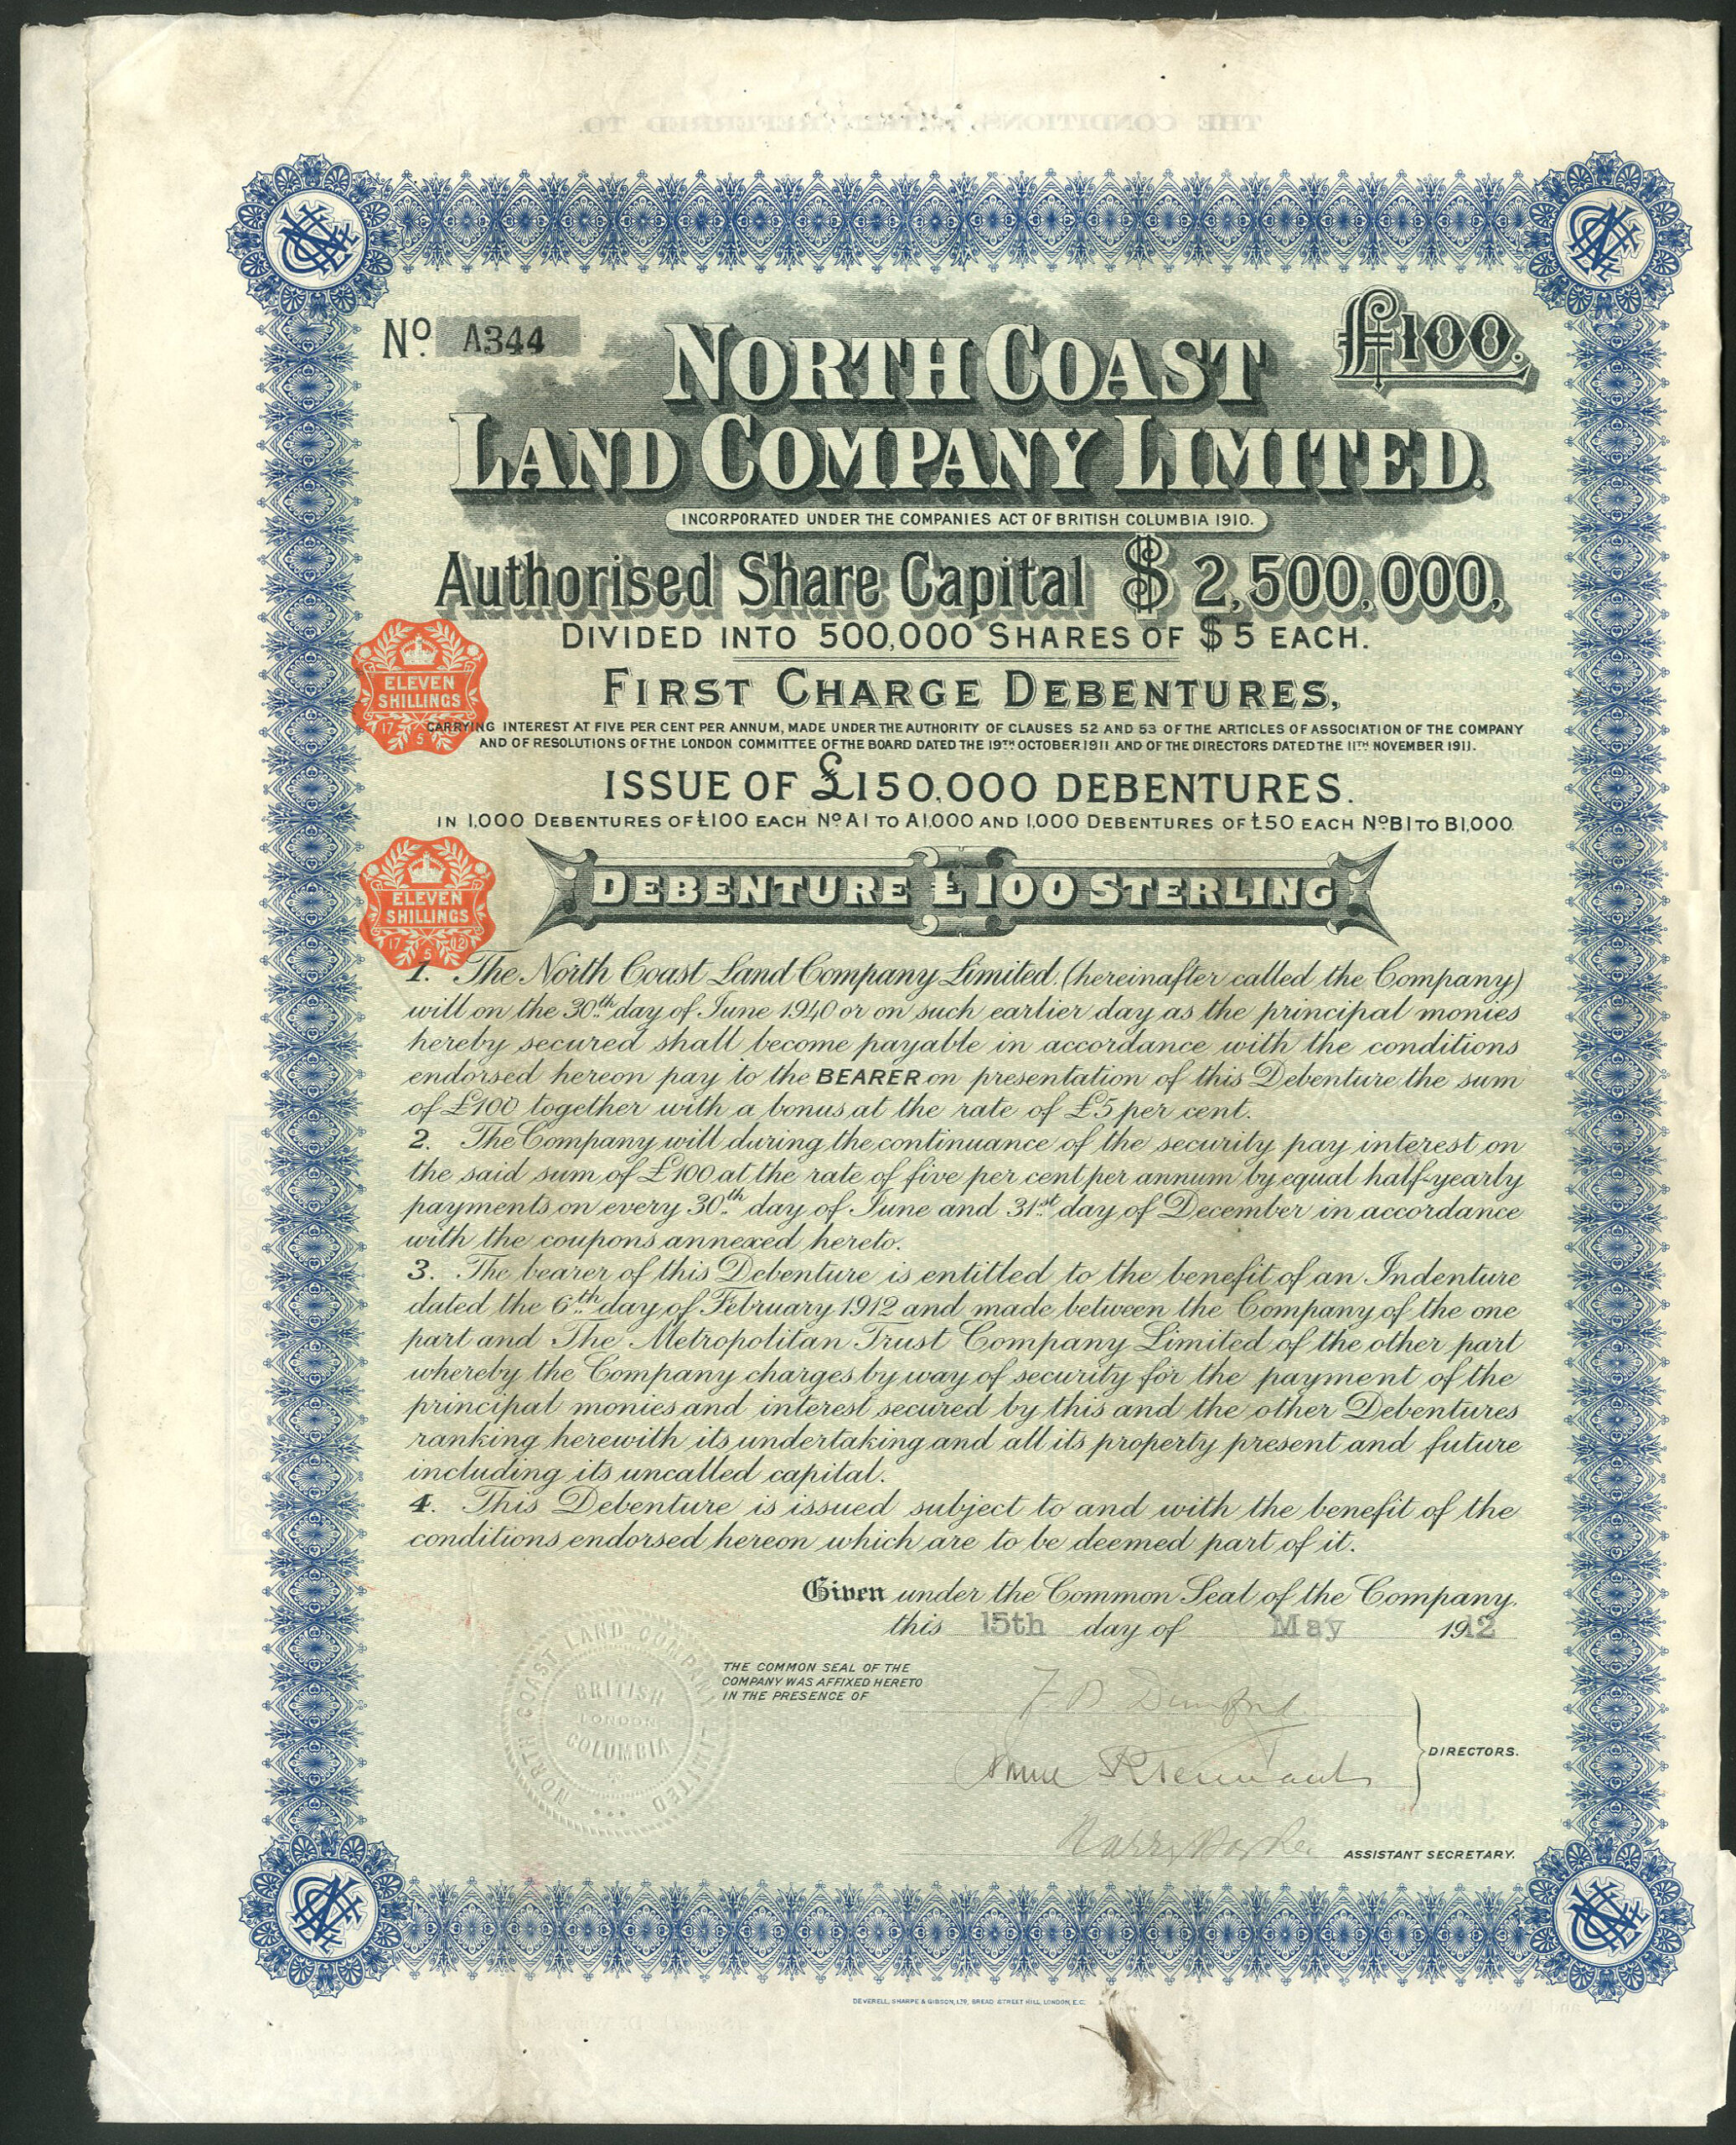 No. A344
£100.
NORTH COAST
LAND COMPANY LIMITED.
INCORPORATED UNDER THE COMPANIES ACT OF BRITISH COLUMBIA 1910.
Authorised Share Capital $ 2,500,000,
DIVIDED INTO 500,000 SHARES OF $5 EACH.
FIRST CHARGE DEBENTURES,
CARRYING INTEREST AT FIVE PER CENT PER ANNUM, MADE UNDER THE AUTHORITY OF CLAUSES 52 AND 53 OF THE ARTICLES OF ASSOCIATION OF THE COMPANY
AND OF RESOLUTIONS OF THE LONDON COMMITTEE OF THE BOARD DATED THE 19TH OCTOBER 1911 AND OF THE DIRECTORS DATED THE 11TH NOVEMBER 1911.
ELEVEN
SHILLINGS
17
5
ISSUE OF £150,000 DEBENTURES.
IN 1,000 DEBENTURES OF £100 EACH No A1 TO A1,000 AND 1,000 DEBENTURES OF £50 EACH No B1 TO B1,000.
DEBENTURE £100 STERLING
ELEVEN
SHILLINGS
17 12
5
1. The North Coast Land Company Limited. (hereinafter called the Company)
will on the 30th day of June 1940 or on such earlier day as the principal monies
hereby secured shall become payable in accordance with the conditions
endorsed hereon pay to the BEARER on presentation of this Debenture the sum
of £100 together with a bonus at the rate of £5 per cent.
2. The Company will during the continuance of the security pay interest on
the said sum of £100 at the rate of five per cent per annum by equal half-yearly
payments on every 30th day of June and 31st day of December in accordance
with the coupons annexed hereto.
3. The bearer of this Debenture is entitled to the benefit of an Indenture
dated the 6th day of February 1912 and made between the Company of the one
part and The Metropolitan Trust Company Limited of the other part
whereby the Company charges by way of security for the payment of the
principal monies and interest secured by this and the other Debentures
ranking herewith its undertaking and all its property present and future
including its uncalled capital.
4. This Debenture is issued subject to and with the benefit of the
conditions endorsed hereon which are to be deemed part of it.
Given under the Common Seal of the Company,
this 15th day of May 1912
THE COMMON SEAL OF THE
COMPANY WAS AFFIXED HERETO
IN THE PRESENCE OF
NORTH COAST LAND COMPANY LIMITED
BRITISH
LONDON
COLUMBIA
DIRECTORS.
ASSISTANT SECRETARY.
DEVERELL, SHARPE & GIBSON, LTD, BREAD STREET HILL, LONDON, E.C.